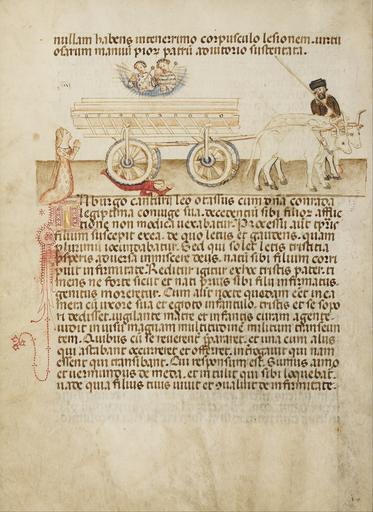 nullam habens in tenerrimo corpusculo lesionem. virtu
osarum manuū pior patrū adiutorio sustentata.
In burgo canturii leo otasius cum dna contada
legiptima coniuge sua. decedentiū sibi filior afflic
tione non modica vexabatur. Processu aut tpris
filium suscepit ex ea. de quo letus et gaudens. quam
plurimū iocundabatur. Sed qui solet letis tristitia
aduersa inmiscere deus. natū sibi filium corri
puit infirmitate. Redditur igitur ex leto tristis pater. ti
mens ne forte sicut et nati prius sibi filii infirmatus.
gentitus moreretur. Cum aūt nocte quadam cēt in ca
mera cū uxore sua et egroto infantulo. tristis et se sopo
ri dedisset. vigilante matre et infantis curam agente.
uidit in uisu magnam multitudinē militum transeun
tem. Quibus cū se reuerenter pararet. et una cum aliis
qui astabant occurreret et offerret. interrogauit qui nam
essent qui transibant. Cui responsum est. Sumus aimo
et uermundus de meda. et intulit qui sibi loquebat.
uade quia filius tuus uiuit et conualuit de infirmitate.